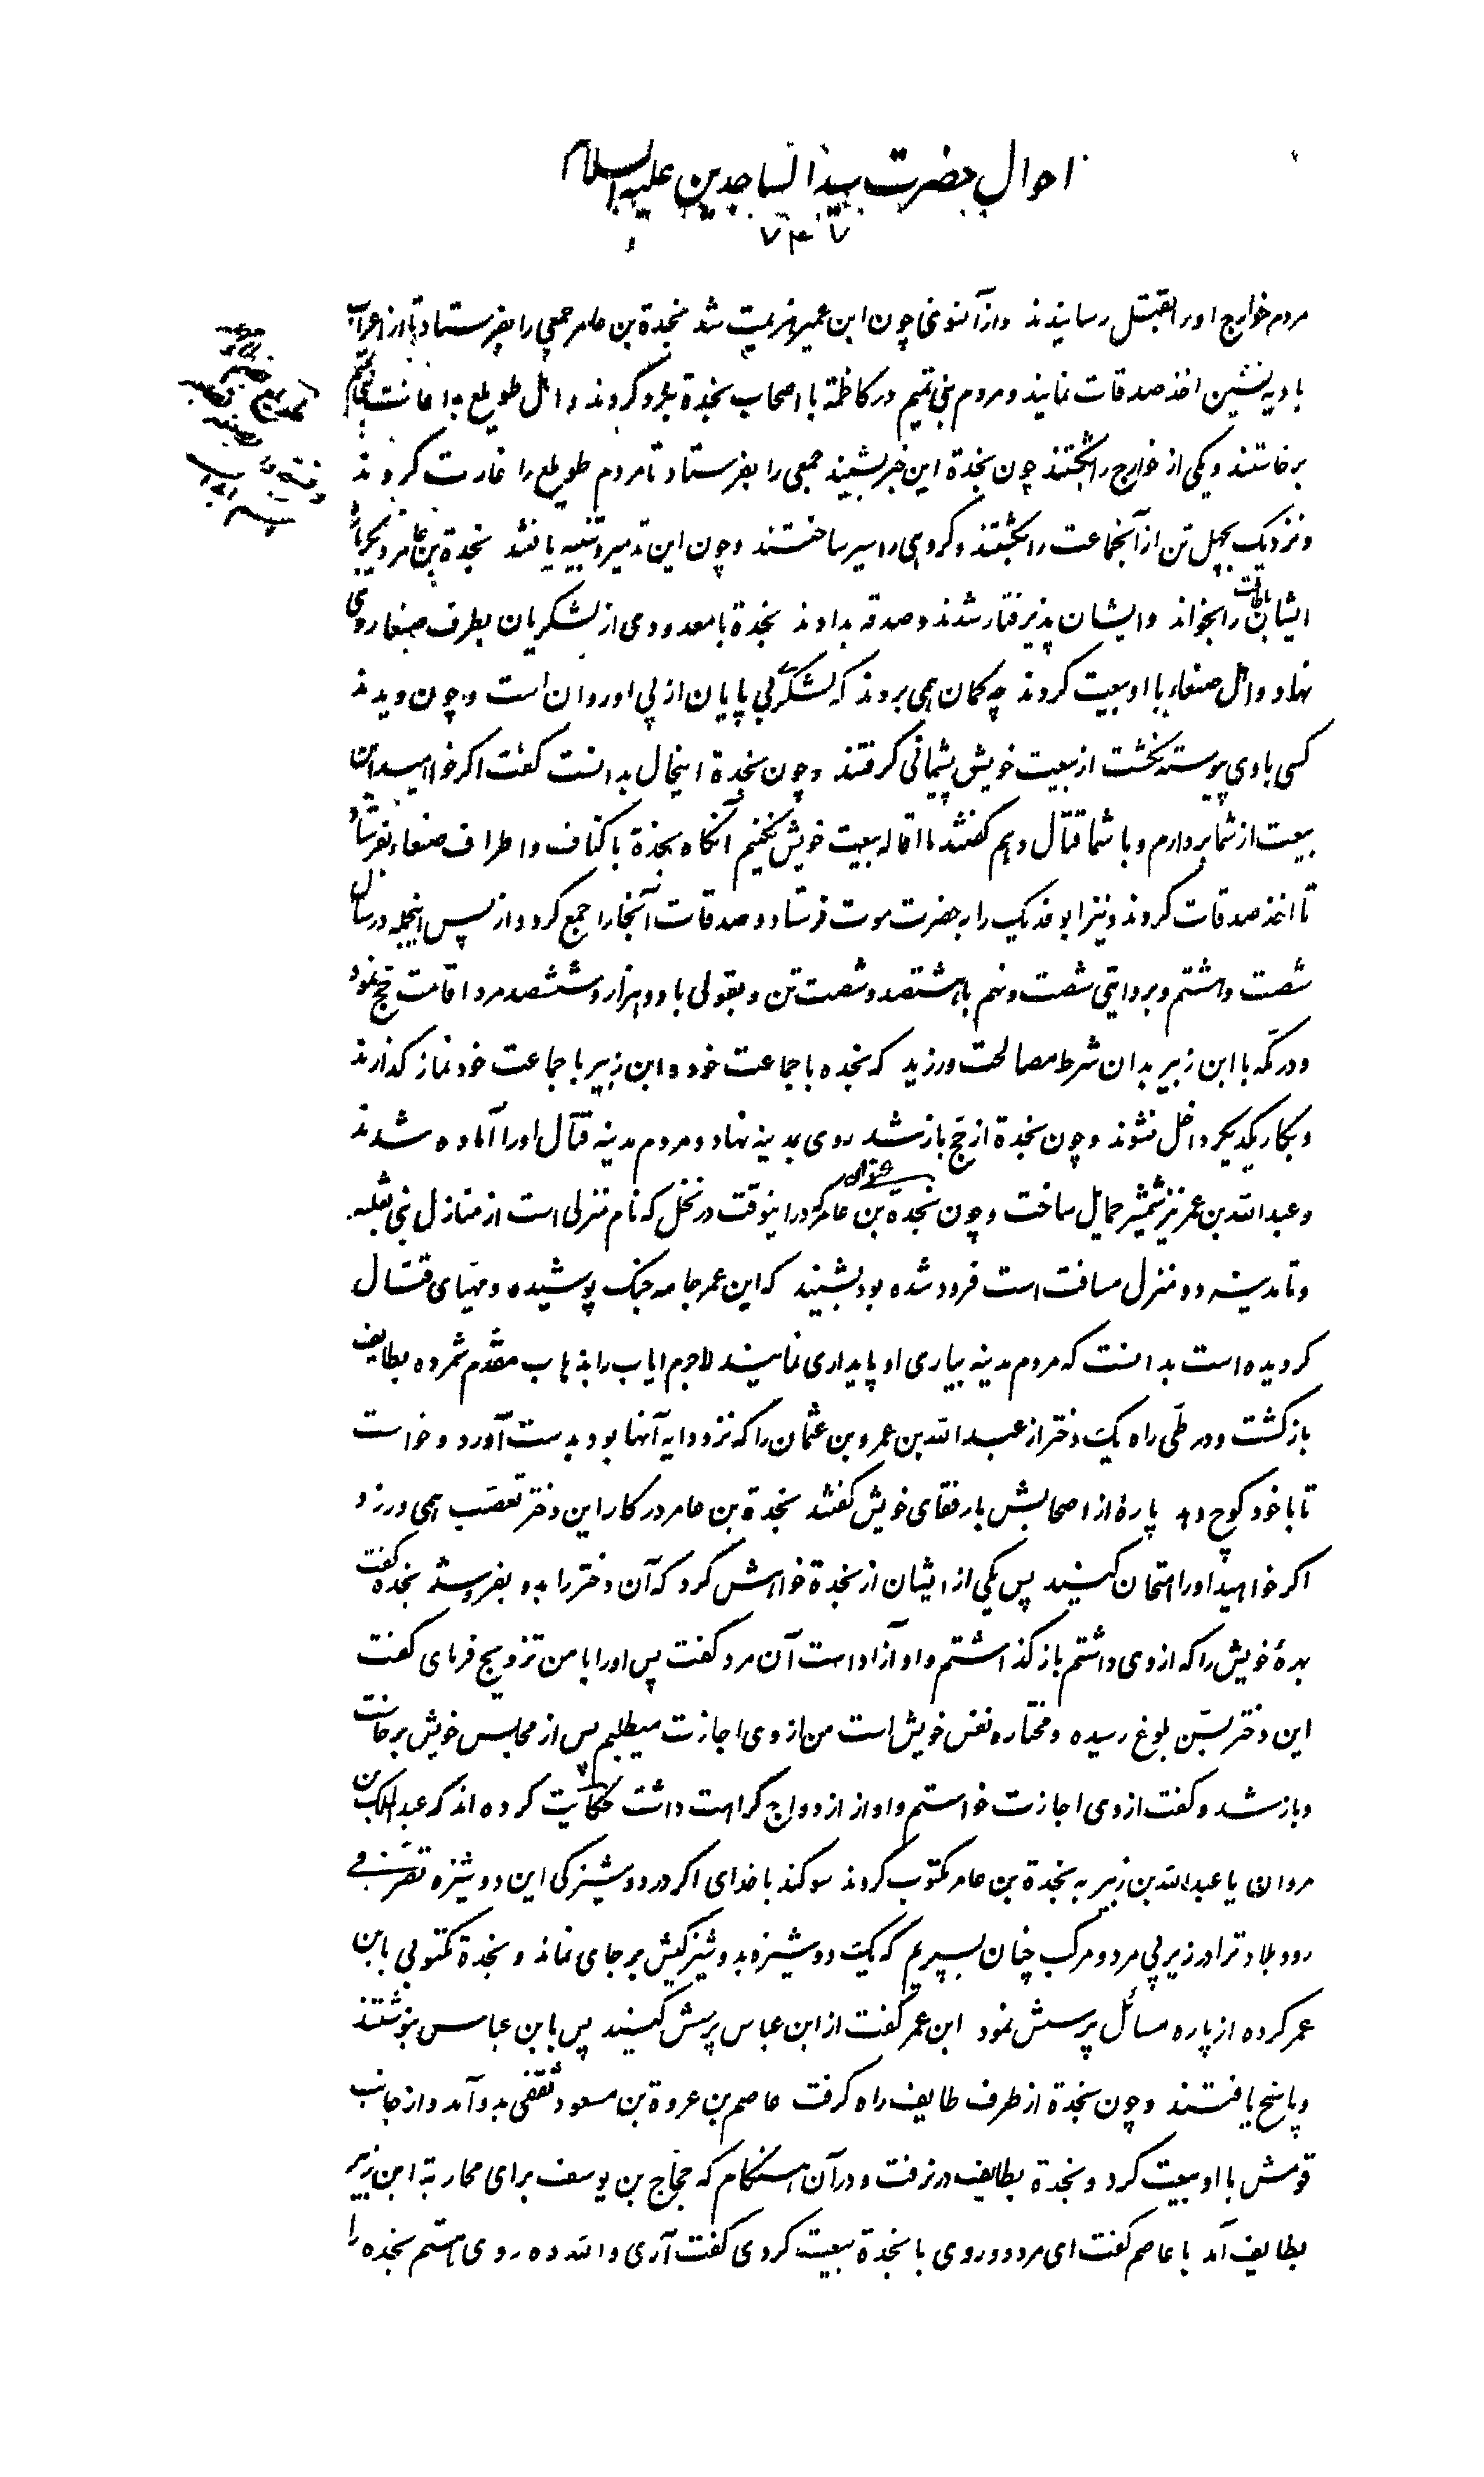 احوال حضرت سید الساجدین علیه السلام
۷۴۷
مردم خوارج او را بقتل رسانیدند و از آنسوی چون ابن عمیر هزیمت شد نجدة بن عامر جمعی را بفرستاد تا از اعراب
بادیه نشین اخذ صدقات نمایند و مردم بنی تمیم در کاظمة با اصحاب نجدة نبرد کردند و اهل طویلع به اعانت بنی تمیم
برخاستند و یکی از خوارج را بکشتند چون نجدة این خبر بشنید جمعی را بفرستاد تا مردم طویلع را غارت کردند
و نزدیک بچهل تن از آنجماعت را بکشتند و گروهی را اسیر ساختند و چون این تدمیر و تنبیه یافتند نجدة بن عامر دیگرباره
ایشان را بطاعت بخواند و ایشان پذیرفتار شدند و صدقه بدادند نجدة با معدودی از لشکریان بطرف صنعا روی
نهاد و اهل صنعاء با او بیعت کردند چه گمان همی بردند که لشکری بی پایان از پی او روان است و چون دیدند
کسی با وی پیوسته نگشت از بیعت خویش پشیمانی گرفتند و چون نجدة اینحال بدانست گفت اگر خواهید این
بیعت از شما بردارم و با شما قتال دهم گفتند ما اقاله بیعت خویش نکنیم آنگاه نجدة باکناف و اطراف صنعاء بفرستاد
تا اخذ صدقات کردند و نیز ابو فدیک را به حضرت موت فرستاد و صدقات آنجا را جمع کرد و از پس اینجمله در سال
شصت و هشتم و بروایتی شصت و نهم با هشتصد و شصت تن و بقولی با دو هزار و ششصد مرد اقامت حج نمود
و در مکه با ابن زبیر بدان شرط مصالحت ورزید که نجده با جماعت خود و ابن زبیر با جماعت خود نماز گذارند
و بکار یکدیگر داخل نشوند و چون نجدة از حج باز شد روی بمدینه نهاد و مردم مدینه قتال او را آماده شدند
و عبدالله بن عمر نیز شمشیر حمایل ساخت و چون نجدة بن عامر که در اینوقت در نخل که نام منزلی است از منازل بنی ثعلبه
و تا مدینه دو منزل مسافت است فرود شده بود بشنید که ابن عمر جامه جنگ پوشیده و مهیای قتال
گردیده است بدانست که مردم مدینه بیاری او پایداری نمایند لاجرم ایاب را بذهاب مقدم شمرده بطایف
بازگشت و در طی راه یک دختر از عبدالله بن عمرو بن عثمان را که نزد دایه آنها بود بدست آورد و خواست
تا با خود کوچ دهد پارهٔ از اصحابش با رفقای خویش گفتند نجدة بن عامر در کار این دختر تعصب همی ورزد
اگر خواهید او را امتحان کنید پس یکی از ایشان از نجدة خواهش کرد که آن دختر را بدو بفروشد نجده گفت
بهرهٔ خویش را که از وی داشتم باز گذاشتم و او آزاد است آن مرد گفت پس او را با من تزویج فرمای گفت
این دختر بسن بلوغ رسیده و مختاره نفس خویش است من از وی اجازت میطلبم پس از مجلس خویش برخاست
و باز شد و گفت از وی اجازت خواستم و او از ازدواج کراهت داشت حکایت کرده اند که عبدالملک بن
مروان یا عبدالله بن زبیر به نجدة بن عامر مکتوب کردند سوگند با خدای اگر در دوشیزگی این دوشیزه تصرفی
رود بلاد ترا در زیر پی مرد و مرکب چنان بسپریم که یک دوشیزه بدوشیزگیش بر جای نماند و نجدة مکتوبی بابن
عمر کرده از پاره مسائل پرسش نمود ابن عمر گفت از ابن عباس پرسش کنید پس بابن عباس بنوشتند
و پاسخ یافتند و چون نجدة از طرف طایف راه گرفت عاصم بن عروة بن مسعود ثقفی بدو آمد و از جانب
قومش با او بیعت کرد و نجدة بطایف در نرفت و در آن هنگام که حجاج بن یوسف برای محاربة ابن زبیر
بطایف آمد با عاصم گفت ای مرد دو روی با نجدة بیعت کردی گفت آری والله ده روی هستم نجده را